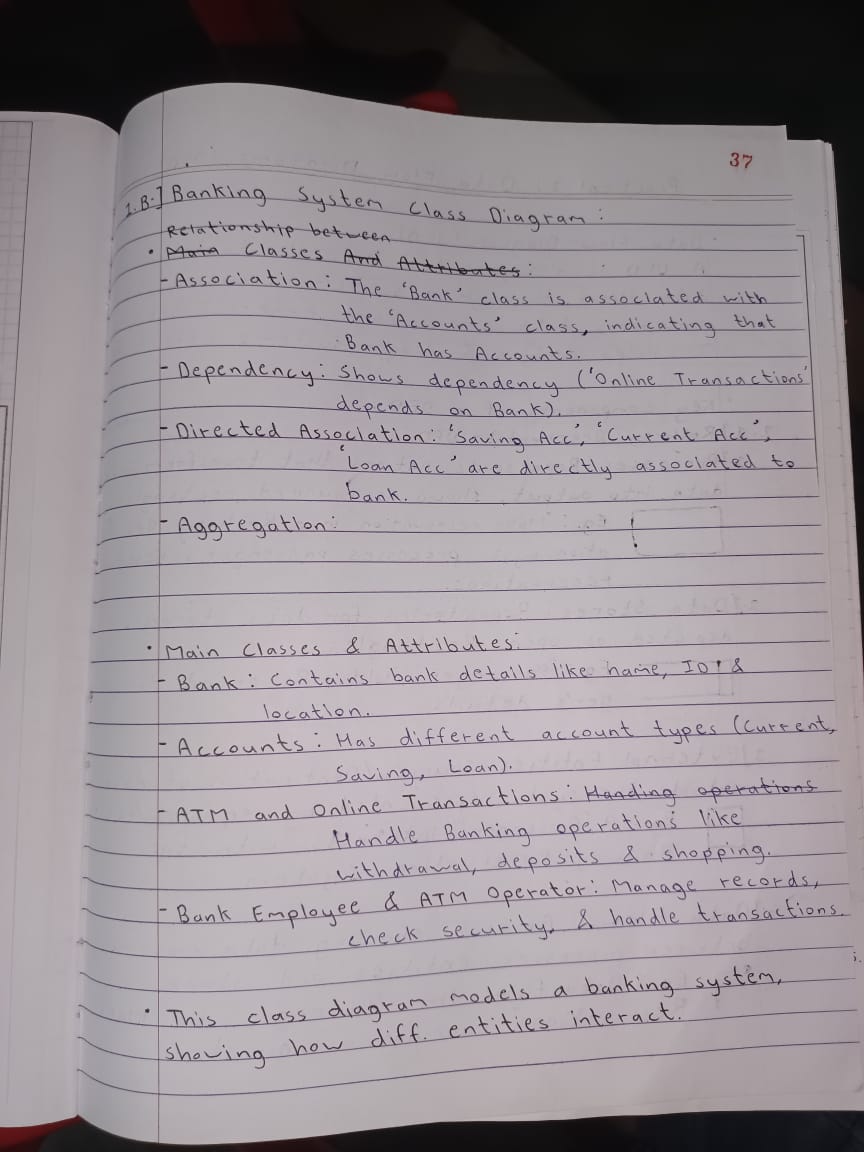 37
1.B.] Banking System Class Diagram:
Relationship between
• Main Classes And Attributes:
- Association: The 'Bank' class is associated with
the 'Accounts' class, indicating that
Bank has Accounts.
- Dependency: Shows dependency ('Online Transactions'
depends on Bank).
- Directed Association: 'Saving Acc', 'Current Acc',
'Loan Acc' are directly associated to
bank.
- Aggregation:
• Main Classes & Attributes:
- Bank: Contains bank details like name, ID, &
location.
- Accounts: Has different account types (Current,
Saving, Loan).
- ATM and Online Transactions: Handing operations
Handle Banking operations like
withdrawal, deposits & shopping.
- Bank Employee & ATM Operator: Manage records,
check security, & handle transactions.
• This class diagram models a banking system,
shoving how diff. entities interact.